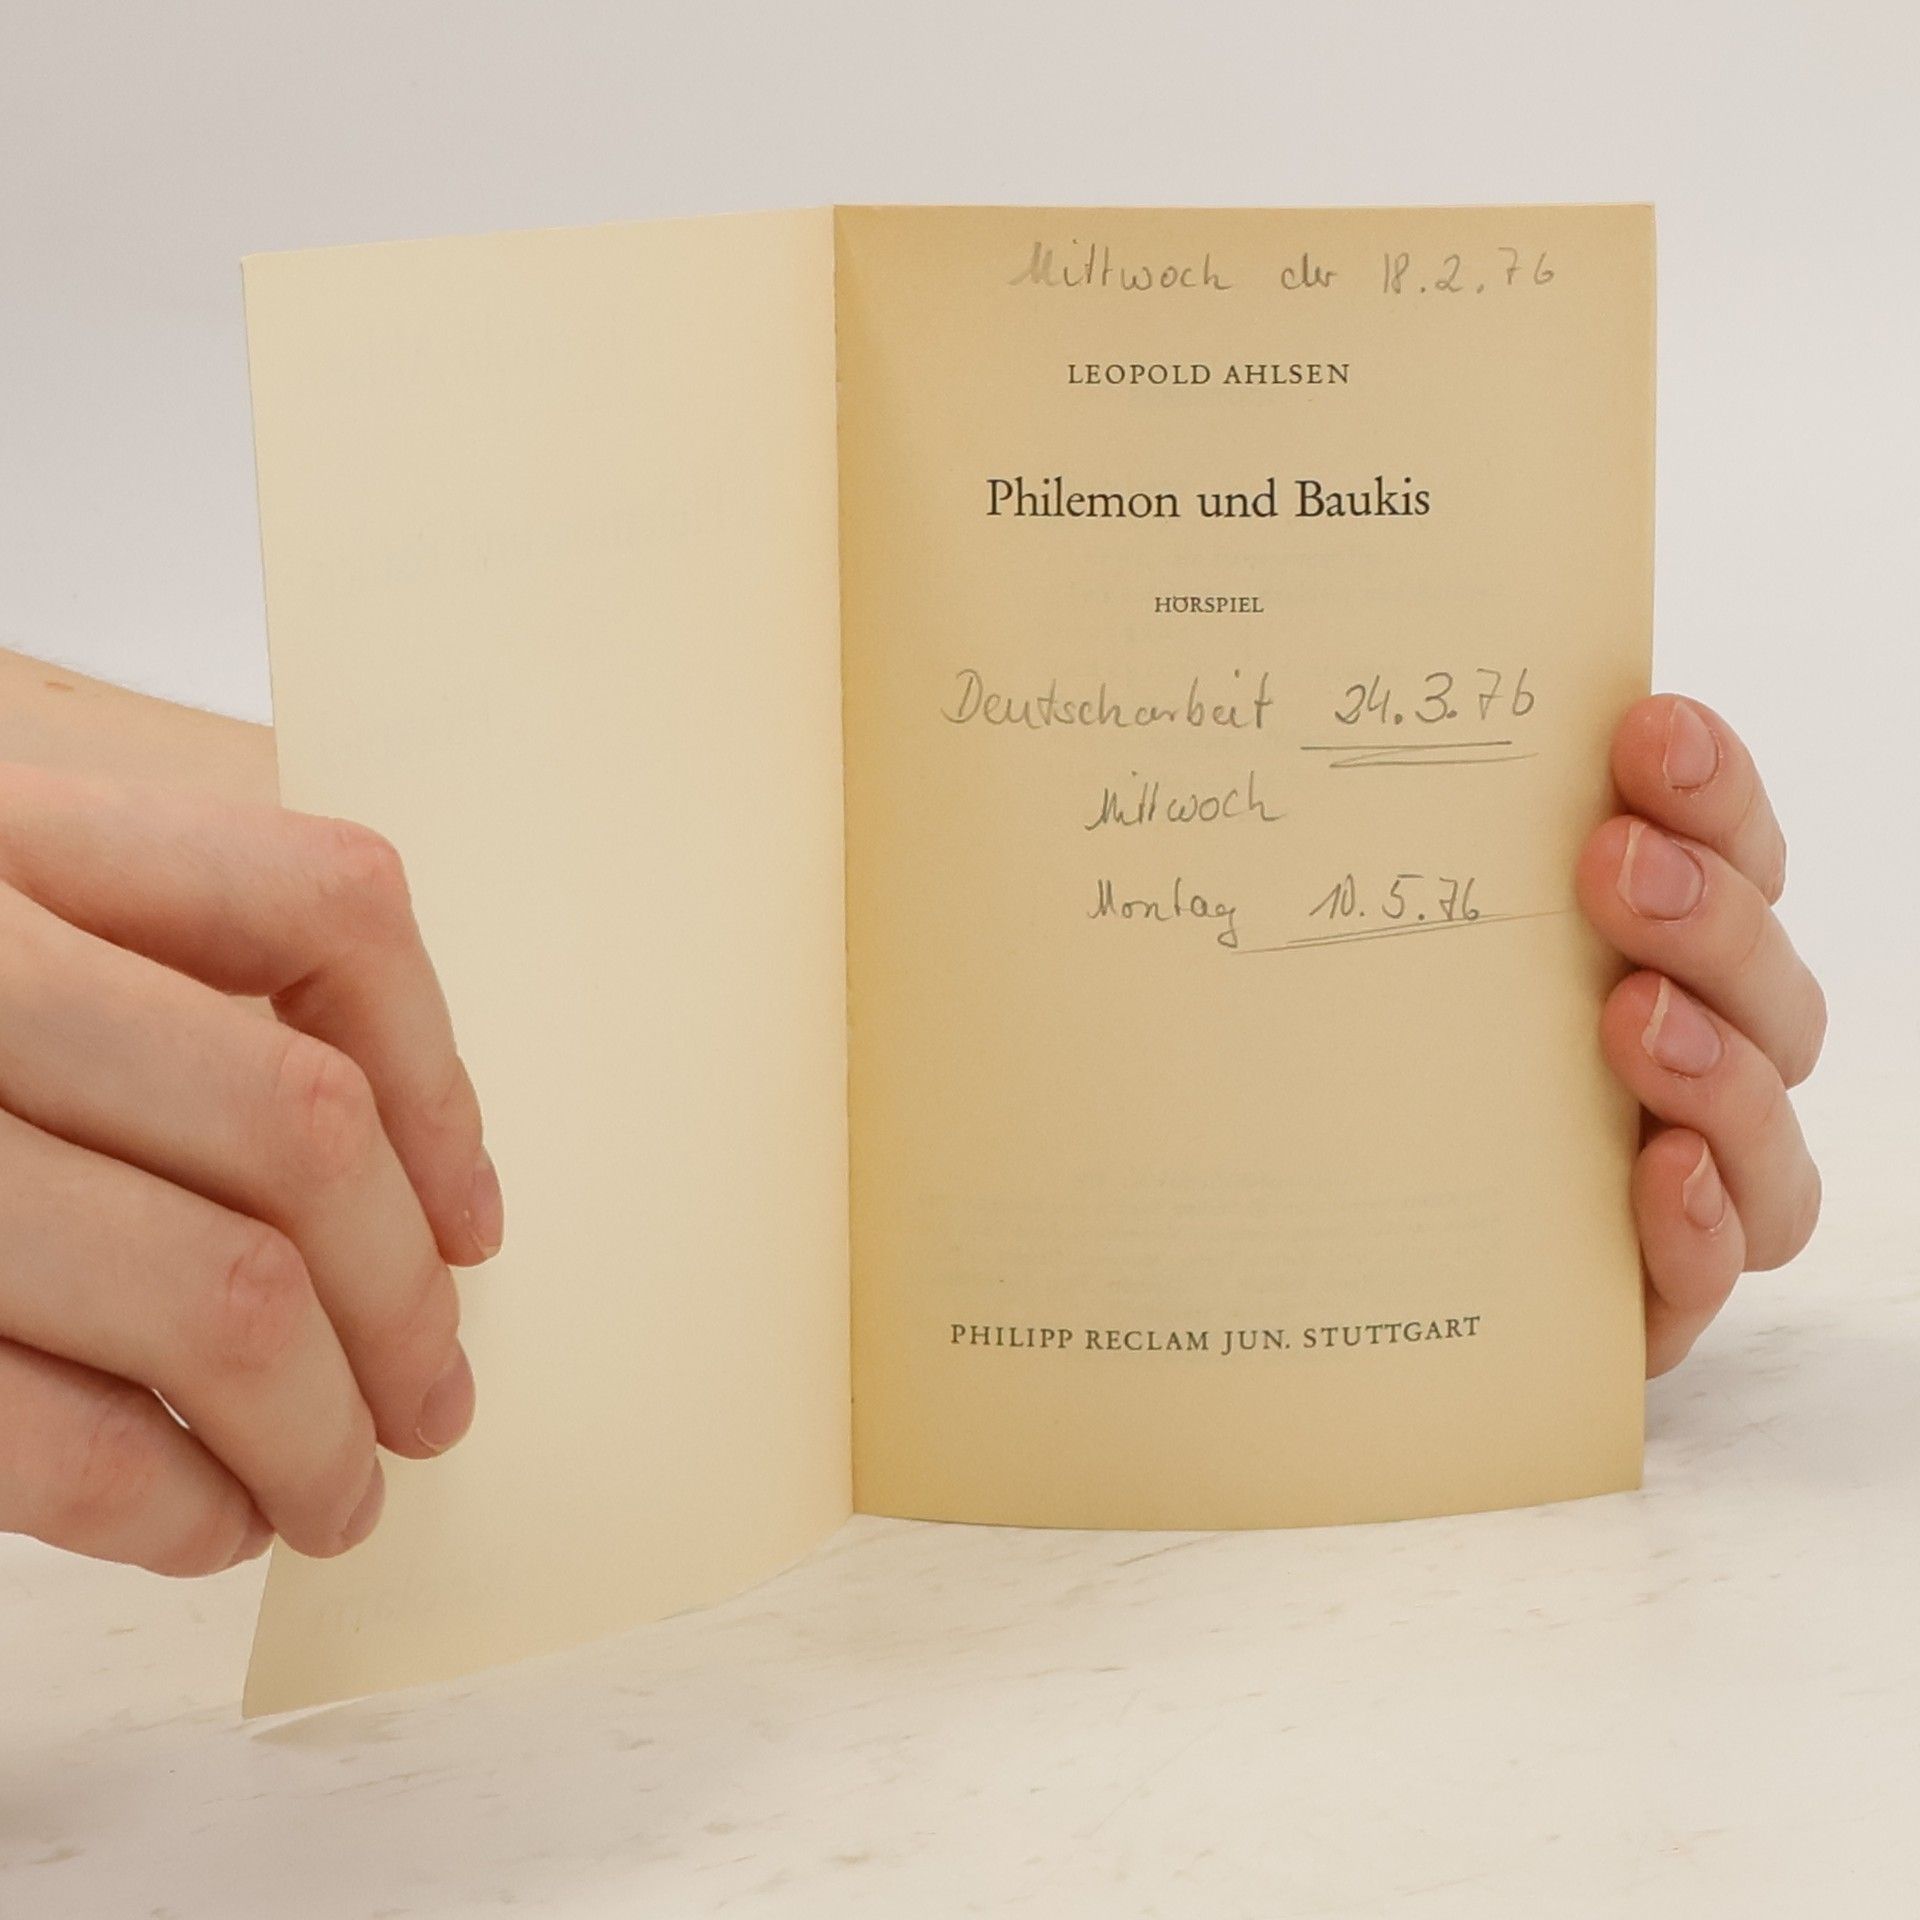 Mittwoch der 18.2.76
LEOPOLD AHLSEN
Philemon und Baukis
HÖRSPIEL
Deutscharbeit 24.3.76
Mittwoch
Montag 10.5.76
PHILIPP RECLAM JUN. STUTTGART